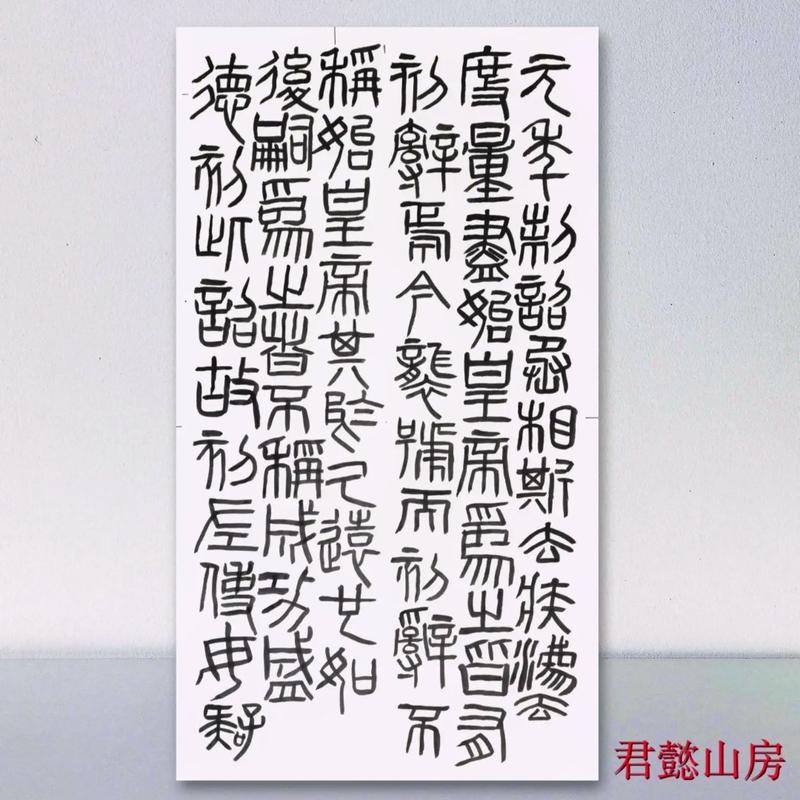 元年制詔丞相斯去疾灋
度量盡始皇帝爲之皆有
刻辭焉今襲號而刻辭不
稱始皇帝其於久遠也如
後嗣爲之者不稱成功盛
德刻此詔故刻左使毋疑
君懿山房